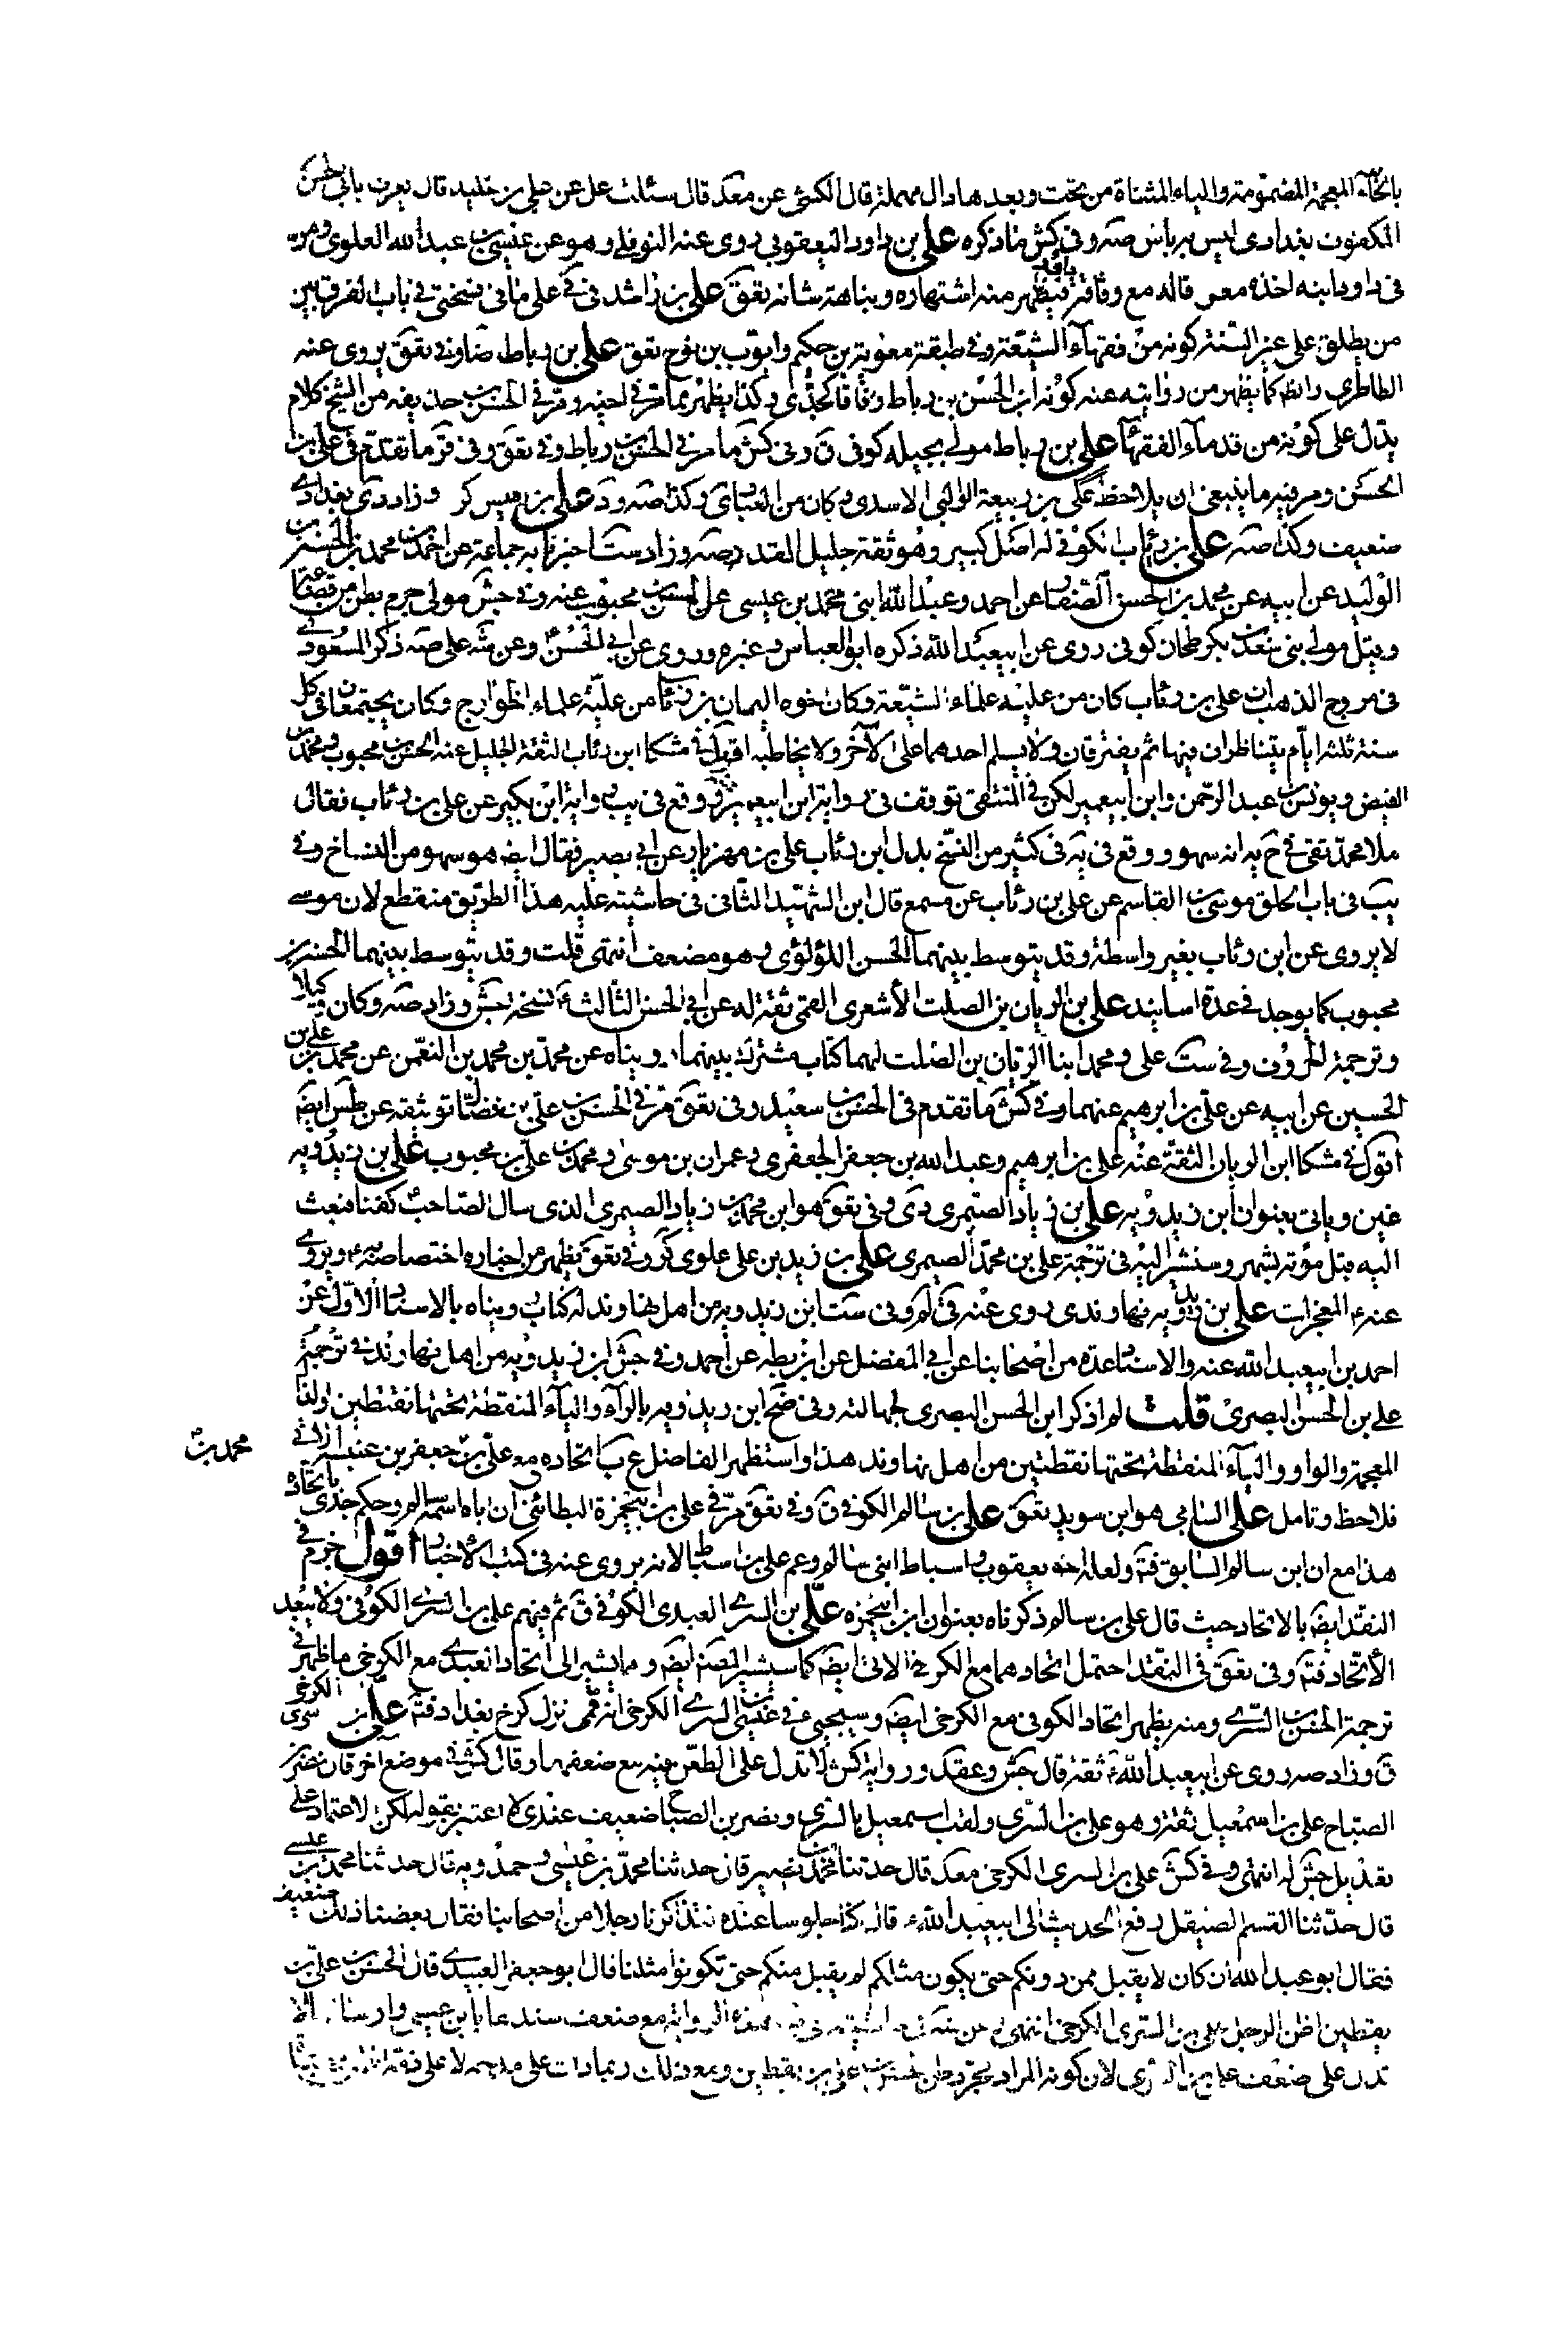 بالخاء المعجمة المضمومة والياء المثناة من تحت وبعدها دال مهملة قال الكشى عن معكد قال سئلت على عن على بن خليد قال يعرف بابى الحسن
المكفوف بغدادى ليس به باس صه وفى كش ما ذكره على بن داود اليعقوبى روى عنه النوفلى وهو عن عيسى بن عبد الله العلوى ومر
فى داود ابنه اخذه مع وفاقد فيظهر منه اشتهاره ونباهة شانه تعق على بن راشد فى كا على ما فى نسختى فى باب الفرق بين
من يطلق على غير السنة كونه من فقهاء الشيعة وفى طبقة معوية بن حكيم وايوب بن نوح تعق على بن رباط ضا وفى تعق يروى عنه
الطاطرى والظ كما يظهر من روايته عنه كونه ابن الحسن بن رباط وفاقا لجدى وكذا يظهر مما مر فى اخيه ومر فى الحسن بن حذيفه من الشيخ كلام
يدل على كونه من قدماء الفقهاء على بن رباط مولى بجيله كوفى ق وفى كش ما مر فى الحسن بن رباط وفى تعق وفى قر ما تقدم فى على بن
الحسن ومر فيه ما ينبغى ان يلاحظ على بن ربيعة الوالبى الاسدى وكان من العباد ى وكذا صه ود على بن رميس كر وزاد دى بغدادى
ضعيف وكذا صه على بن رئاب الكوفى له اصل كبير وهو ثقة جليل القدر صه وزاد ست اخبرنا به جماعة عن احمد بن محمد بن الحسن بن
الوليد عن ابيه عن محمد بن الحسن الصفار عن احمد وعبد الله ابنى محمد بن عيسى عن الحسن بن محبوب عنه وفى جش مولى جرم بطن من قضاعة
وقيل مولى بنى سعد بن بكر طحان كوفى روى عن ابيعبد الله ذكره ابو العباس وغيره وروى عن ابى الحسن وعن شه على صه ذكر المسعودى
فى مروج الذهب ان على بن رئاب كان من علية علماء الشيعة وكان اخوه اليمان بن رئاب من علية علماء الخوارج وكان يجتمعان فى كل
سنة ثلثه ايام يتناظران فيها ثم يفترقان ولا يسلم احدهما على الاخر ولا يخاطبه اقول فى مشكا ابن رئاب الثقة الجليل عنه الحسن بن محبوب ومحمد بن
الفيض ويونس بن عبد الرحمن وابن ابيعمير لكن فى المنتقى توقف فى رواية ابن ابيعمير ووقع فى يب رواية ابن بكير عن على بن رئاب فقال
ملا محمد تقى فى ح يه انه سهو ووقع فى يه فى كثير من النسخ بدل ابن رئاب على بن مهزيار عن ابى بصير فقال ايض هو سهو من النساخ وفى
يب فى باب الحلق موسى بن القاسم عن على بن رئاب عن مسمع قال ابن الشهيد الثانى فى حاشيته عليه هذا الطريق منقطع لان موسى
لا يروى عن ابن رئاب بغير واسطة وقد يتوسط بينهما الحسن اللؤلؤى وهو مضعف انتهى قلت وقد يتوسط بينهما الحسن بن
محبوب كما يوجد فى عدة اسانيد على بن الريان بن الصلت الأشعرى القمى ثقة له عن ابى الحسن الثالث نسخة جش وزاد صه وكان وكيلا
وترجمة الحروف وفى ست على ومحمد ابنا الريان بن الصلت لهما كتاب مشترك بينهما رويناه عن محمد بن محمد بن النعمن عن محمد بن على بن
الحسين عن ابيه عن على بن ابرهيم عنهما وفى كش ما تقدم فى الحسن بن سعيد وفى تعق مر فى الحسن بن على بن فضال توثيقه عن طس ايضه
اقول فى مشكا ابن الريان الثقة عنه على بن ابرهيم وعبد الله بن جعفر الجعفرى وعمران بن موسى ومحمد بن على بن محبوب على بن زيدويه
غين وياتى بعنوان ابن زيدويه على بن زياد الصيمرى دى وفى تعق هو ابن محمد بن زياد الصيمرى الذى سال الصاحب كفنا فبعث
اليه قبل موته بشهر وسنشير اليه فى ترجمة على بن محمد الصيمرى على بن زيد بن على علوى كر وفى تعق يظهر من اخباره اختصاصه به ويروى
عنه المعجزات على بن زيدويه نهاوندى روى عنه فى لم وفى ست ابن زيدويه من اهل نهاوند له كتاب رويناه بالاسناد الاول عن
احمد بن ابيعبد الله عنه والاسناد عدة من اصحابنا عن ابى المفضل عن ابن بطه عن احمد وفى جش ابن زيدويه من اهل نهاوند فى ترجمة
على بن الحسن البصرى قلت لم اذكر ابن الحسن البصرى لجهالته وفى ضح ابن ريذويه بالراء والياء المنقطة تحتها نقطتين والذال
المعجمة والواو والياء المنقطة تحتها نقطتين من اهل نهاوند هذا واستظهر الفاضل ع ب اتحاده مع على بن جعفر بن عنبسه الاتى
محمد بن
فلاحظ وتامل على السابى هو ابن سويد تعق على بن سالم الكوفى ق وفى تعق مر فى على بن ابيحمزة البطائنى ان اباه اسمه سالم وحكم جدى باتحاده
هذا مع ان ابن سالم السابق فتم ولعله اخو يعقوب واسباط ابنى سالم وعم على بن اسباط لانه يروى عنه فى كتب الاخبار اقول جزم فى
النقد ايض بالاتحاد حيث قال على بن سالم ذكرناه بعنوان ابن ابيحمزه على بن السرى العبدى الكوفى ق ثم فيهم على بن السرى الكوفى ولا يبعد
الأتحاد فتم وفى تعق فى النقد احتمل اتحادهما مع الكرخى الاتى ايضه كما سيشير المصنف ايضه ومما يشير الى اتحاد العبدى مع الكرخى ما ظهر فى
ترجمة الحسن بن السرى ومنه يظهر اتحاد الكوفى مع الكرخى ايضه وسيجيى فى عيسى بن السرى الكرخى انه قمى نزل كرخ بغداد فتم على بن سرى الكرخى
ق وزاد صه روى عن ابيعبد الله ثقة قال جش وعقد ورواية كش لا تدل على الطعن فيه مع ضعفها وقال كش فى موضع اخر قال نصر بن
الصباح على بن اسمعيل ثقة وهو على بن السرى ولقب اسمعيل بالسرى ونصر بن الصباح ضعيف عندى لا اعتبر بقوله لكن الاعتماد على
تعديل جش له انتهى وفى كش على بن السرى الكرخى معكد قال حدثنا محمد بن نصير قال حدثنا محمد بن عيسى وحمدويه قال حدثنا محمد بن عيسى
قال حدثنا القسم الصيقل رفع الحديث الى ابيعبد الله قال كنا جلوسا عنده نتذاكرنا رجلا من اصحابنا فقال بعضنا ذلك ضعيف
فقال ابو عبد الله ان كان لا يقبل ممن دونكم حتى يكون مثلكم لم يقبل منكم حتى تكونوا مثلنا قال ابو جعفر العبيدى قال الحسن بن على بن
يقطين اظن الرجل على بن السرى الكرخى انتهى وعن شه هذه الرواية مع ضعف سندها بابن عيسى وارسالها لا
تدل على ضعف على بن السرى لان كونه المراد بمجرد ظن الحسن بن على بن يقطين ومع ذلك ربما دلت على مدحه لا على